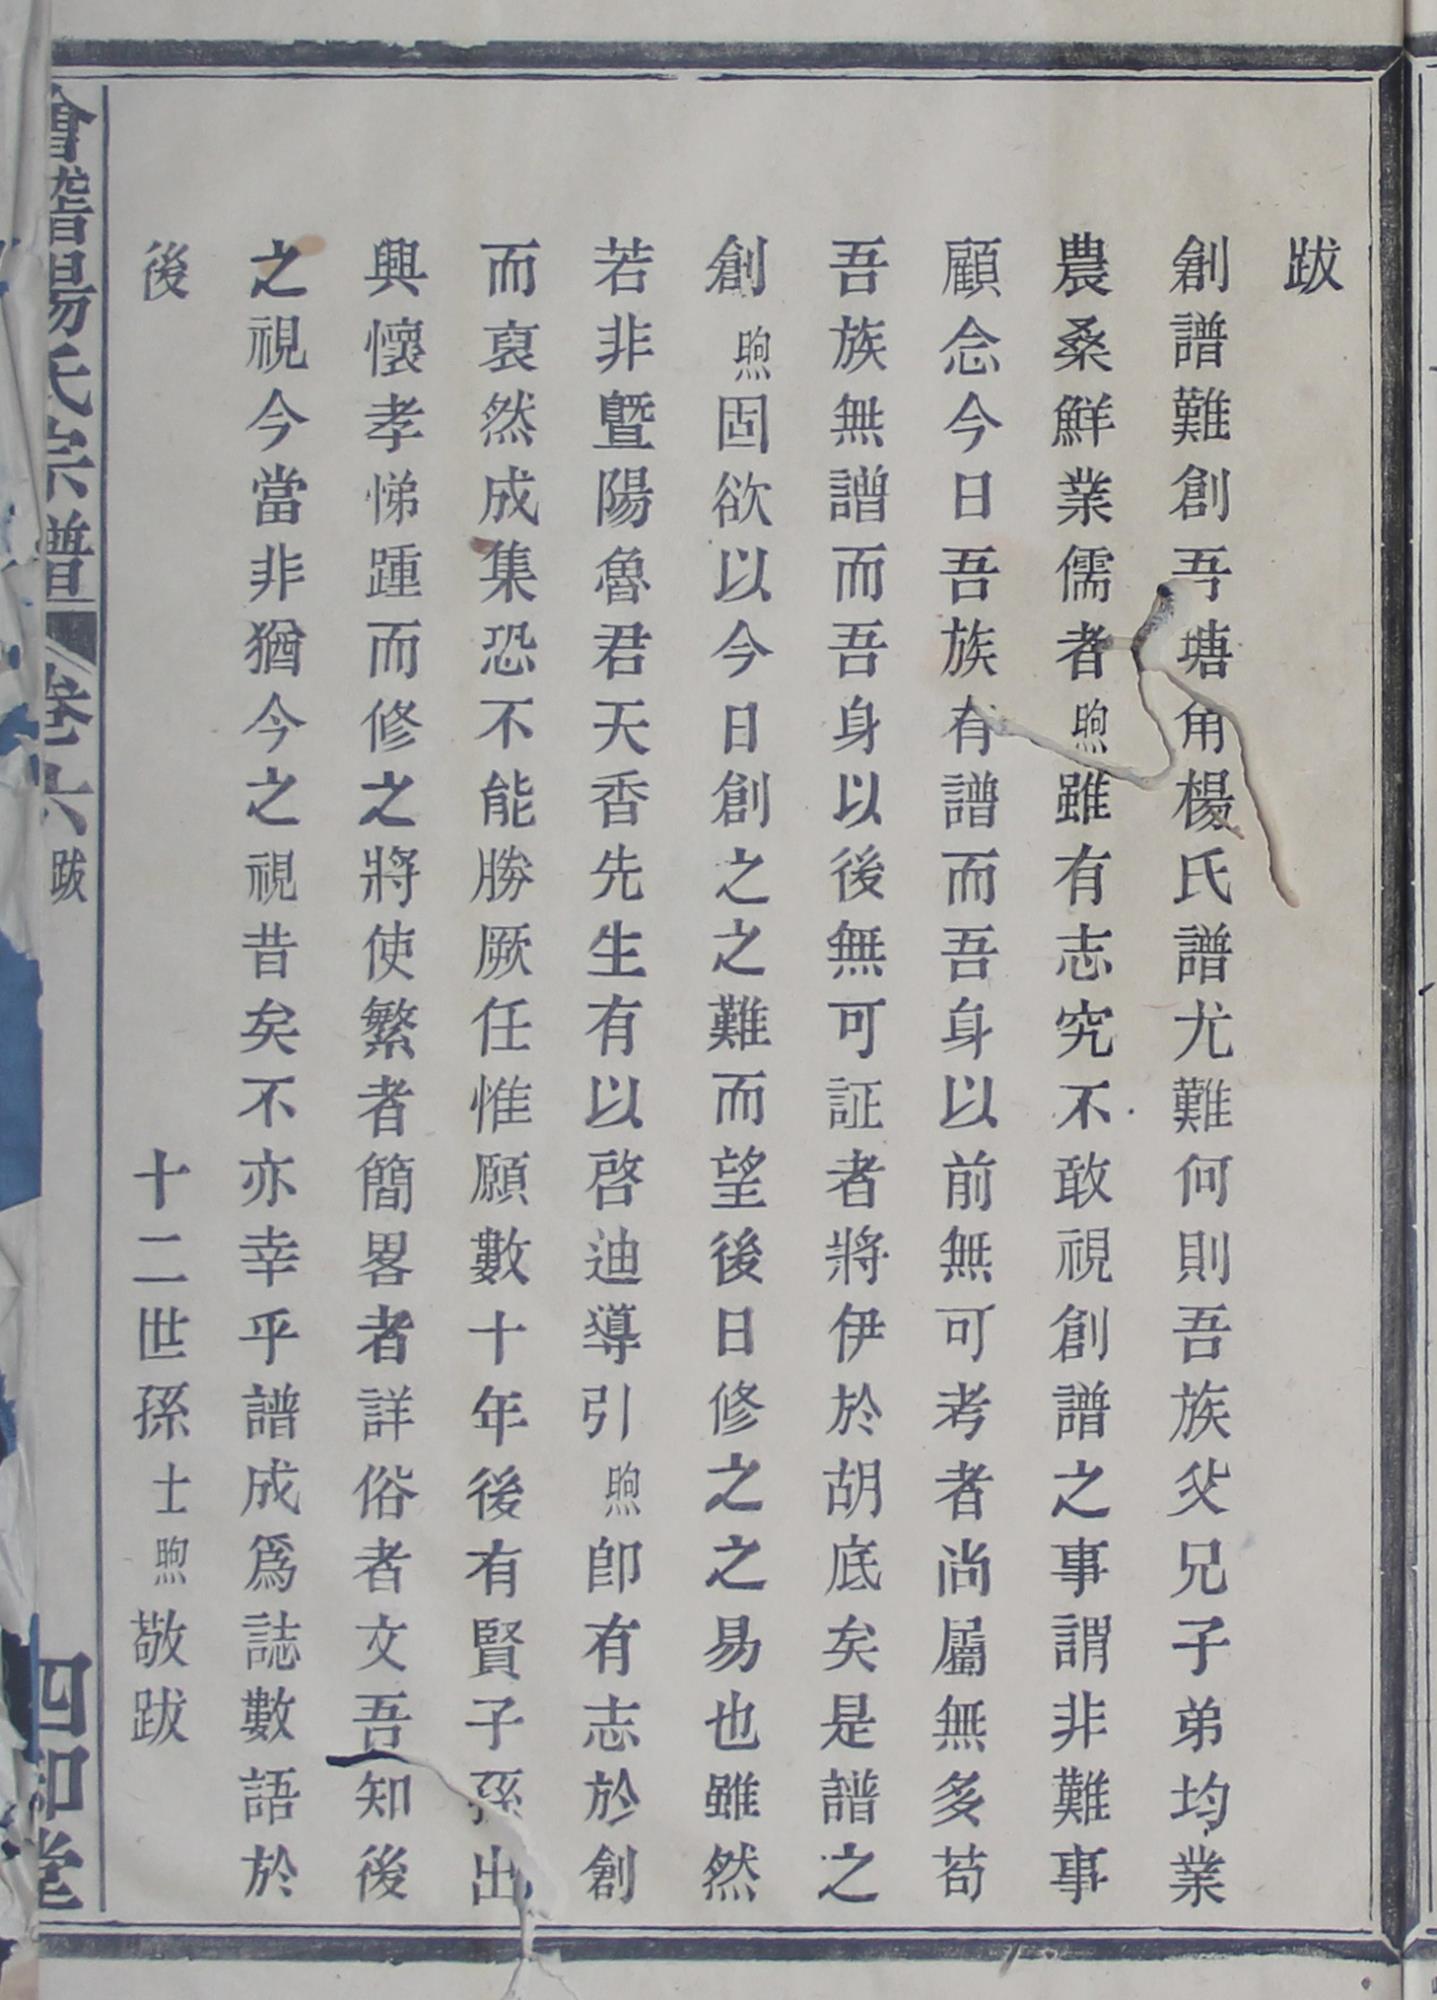 跋
創譜難創吾塘甪楊氏譜尤難何則吾族父兄子弟均業
農桑鮮業儒者煦雖有志究不敢視創譜之事謂非難事
顧念今日吾族有譜而吾身以前無可考者尚屬無多苟
吾族無譜而吾身以後無可証者將伊於胡底矣是譜之
創煦固欲以今日創之之難而望後日修之之易也雖然
若非暨陽魯君天香先生有以啓迪導引煦卽有志於創
而裒然成集恐不能勝厥任惟願數十年後有賢子孫出
興懷孝悌踵而修之將使繁者簡畧者詳俗者文吾知後
之視今當非猶今之視昔矣不亦幸乎譜成爲誌數語於
後
十二世孫士煦敬跋
會稽楊氏宗譜 卷六 跋 四知堂